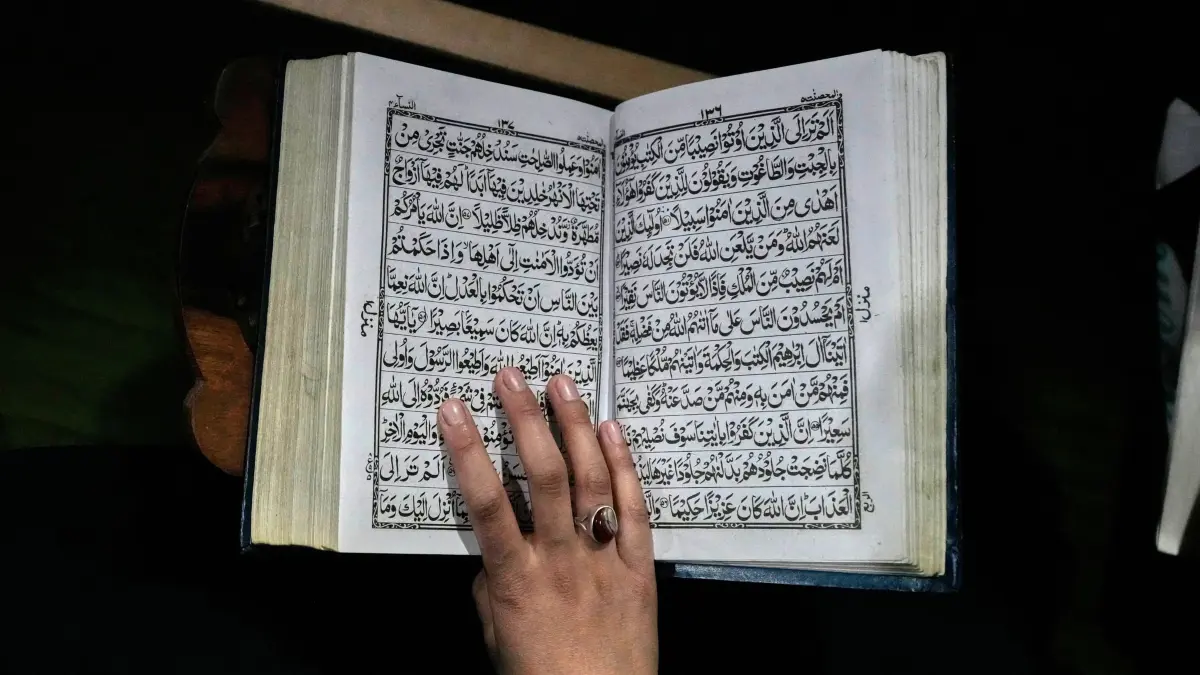 والمحصنٰت ٥
١٣٦
اَلَمْ تَرَ اِلَى الَّذِيْنَ اُوْتُوْا نَصِيْبًا مِّنَ الْكِتٰبِ يُؤْمِنُوْنَ
بِالْجِبْتِ وَالطَّاغُوْتِ وَيَقُوْلُوْنَ لِلَّذِيْنَ كَفَرُوْا هٰٓؤُلَآءِ
اَهْدٰى مِنَ الَّذِيْنَ اٰمَنُوْا سَبِيْلًا ﴿٥١﴾ اُولٰٓئِكَ الَّذِيْنَ
لَعَنَهُمُ اللّٰهُ وَمَنْ يَّلْعَنِ اللّٰهُ فَلَنْ تَجِدَ لَهٗ نَصِيْرًا
اَمْ لَهُمْ نَصِيْبٌ مِّنَ الْمُلْكِ فَاِذًا لَّا يُؤْتُوْنَ النَّاسَ نَقِيْرًا
اَمْ يَحْسُدُوْنَ النَّاسَ عَلٰى مَآ اٰتٰىهُمُ اللّٰهُ مِنْ فَضْلِهٖ فَقَدْ
اٰتَيْنَآ اٰلَ اِبْرٰهِيْمَ الْكِتٰبَ وَالْحِكْمَةَ وَاٰتَيْنٰهُمْ مُّلْكًا عَظِيْمًا
فَمِنْهُمْ مَّنْ اٰمَنَ بِهٖ وَمِنْهُمْ مَّنْ صَدَّ عَنْهُ وَكَفٰى بِجَهَنَّمَ
سَعِيْرًا ﴿٥٥﴾ اِنَّ الَّذِيْنَ كَفَرُوْا بِاٰيٰتِنَا سَوْفَ نُصْلِيْهِمْ
كُلَّمَا نَضِجَتْ جُلُوْدُهُمْ بَدَّلْنٰهُمْ جُلُوْدًا غَيْرَهَا
الْعَذَابَ اِنَّ اللّٰهَ كَانَ عَزِيْزًا حَكِيْمًا ﴿٥٦﴾
منزل ١
الربع
النسآء ٤
١٣٧
اٰمَنُوْا وَعَمِلُوا الصّٰلِحٰتِ سَنُدْخِلُهُمْ جَنّٰتٍ تَجْرِيْ مِنْ
تَحْتِهَا الْاَنْهٰرُ خٰلِدِيْنَ فِيْهَآ اَبَدًا لَهُمْ فِيْهَآ اَزْوَاجٌ
مُّطَهَّرَةٌ وَّنُدْخِلُهُمْ ظِلًّا ظَلِيْلًا ﴿٥٧﴾ اِنَّ اللّٰهَ يَاْمُرُكُمْ
اَنْ تُؤَدُّوا الْاَمٰنٰتِ اِلٰٓى اَهْلِهَا وَاِذَا حَكَمْتُمْ
بَيْنَ النَّاسِ اَنْ تَحْكُمُوْا بِالْعَدْلِ اِنَّ اللّٰهَ نِعِمَّا
يَعِظُكُمْ بِهٖ اِنَّ اللّٰهَ كَانَ سَمِيْعًا بَصِيْرًا ﴿٥٨﴾ يٰٓاَيُّهَا
الَّذِيْنَ اٰمَنُوْٓا اَطِيْعُوا اللّٰهَ وَاَطِيْعُوا الرَّسُوْلَ وَاُولِى
فِيْ شَيْءٍ فَرُدُّوْهُ اِلَى اللّٰهِ
وَالْيَوْمِ الْاٰخِرِ
اَلَمْ تَرَ اِلَى
اُنْزِلَ اِلَيْكَ وَمَآ
منزل ١